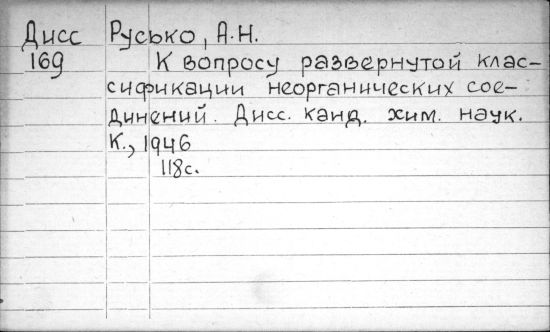 Дисс Русько, А.Н.
169 К вопросу развернутой клас-
сификации неорганических сое-
динений. Дисс. канд. хим. наук.
К., 1946
118с.